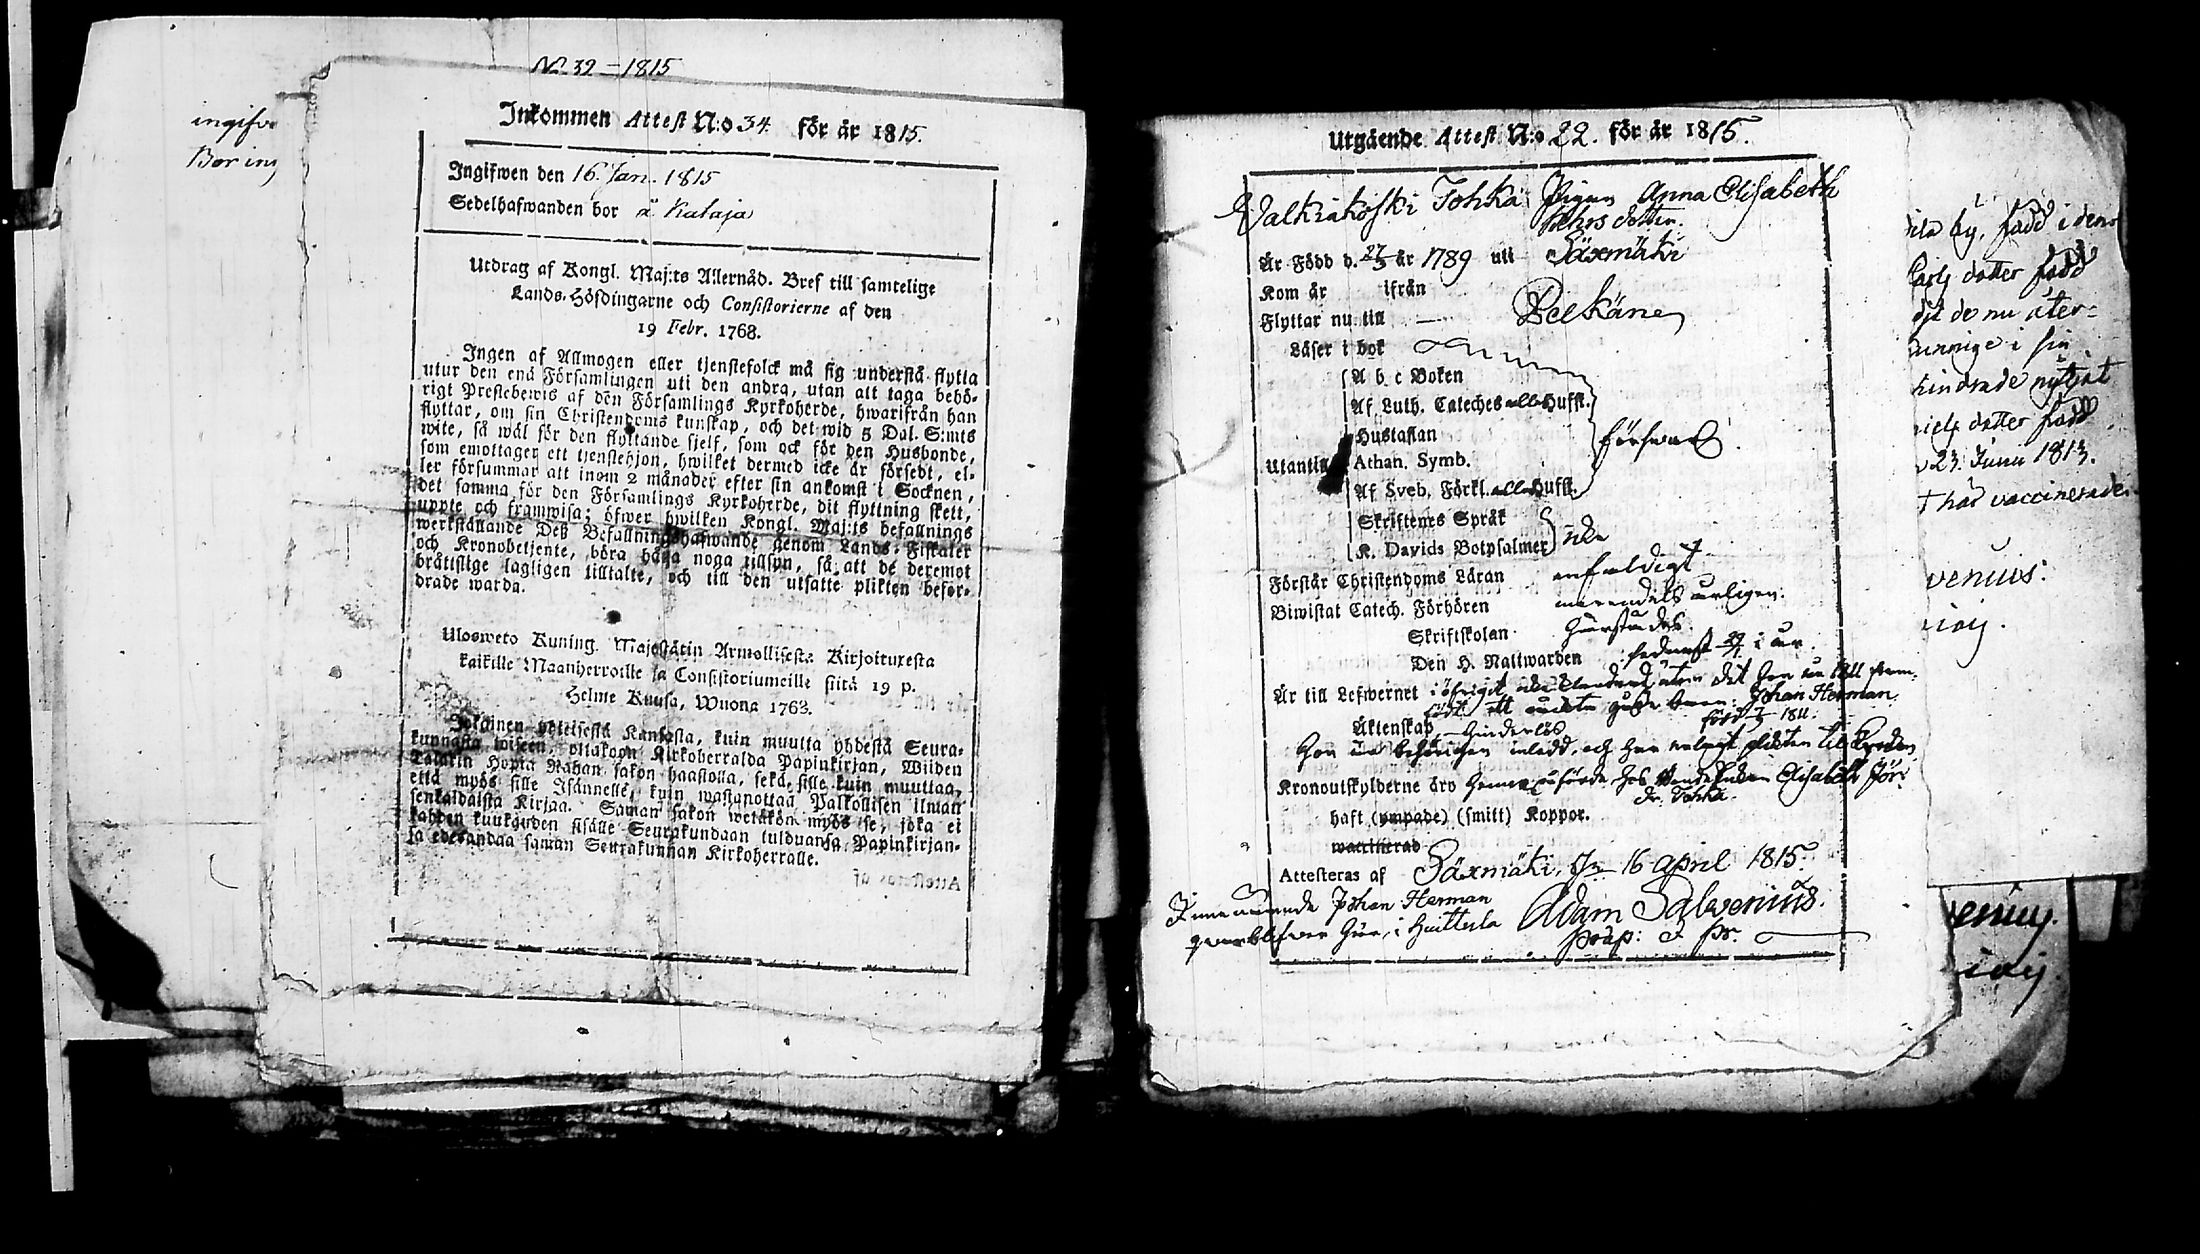 No 32 – 1815
ingifv
Bor inj
Inkommen Attest N:o 34. för år 1815.
Ingifwen den 16 Jan. 1815
Sedelhafwanden bor å Kataja
Utdrag af Kongl. Maj:ts Allernåd. Bref till samtelige
Lands-Höfdingarne och Consistorierne af den
19 Febr. 1768.
Ingen af Allmogen eller tjenstefolck må sig understå flytta
utur den ena Församlingen uti den andra, utan att taga behö-
rigt Prestebewis af den Församlings Kyrkoherde, hwarifrån han
flyttar, om sin Christendoms kunskap, och det wid 5 Dal. S:mts
wite, så wäl för den flyttande sjelf, som ock för den Husbonde,
som emottager ett tjenstehjon, hwilket dermed icke är försedt, el-
ler försummar att inom 2 månader efter sin ankomst i Socknen,
det samma för den Församlings Kyrkoherde, dit flyttning skett,
uppte och framwisa; öfwer hwilken Kongl. Maj:ts befallnings
werkställande Deß Befallningshafwande genom Lands-Fiskaler
och Kronobetjente, böra hafa noga tillsyn, så att de deremot
bråttslige lagligen tilltalte, och till den utsatte plikten befor-
drade warda.
Ulosweto Kuning. Majestätin Armollisesta Kirjoituxesta
kaikille Maanherroille ja Consistoriumeille siitä 19 p.
Helme Kuusa, Wuona 1768.
Jokainen yhteisestä Kansasta, kuin muutta yhdestä Seura-
kunnasta toiseen, ottakoon Kirkoherralda Papinkirjan, Wiiden
Talarin Hopia Rahan sakon haastolla, sekä sille kuin muuttaa,
että myös sille Isännelle, kuin wastanottaa Palkollisen ilman
senkaldaista Kirjaa. Saman sakon wetäkön myös se, joka ei
kahden kuukauden sisälle Seurakundaan tulduansa, Papinkirjan-
sa edesandaa saman Seurakunnan Kirkoherralle.
Attesteras af
Utgående Attest N:o 22. för år 1815.
Walkiakoski Tohka Pigan Anna Elisabeth
Pehrs dotter.
Är Född d. 27/3 år 1789 uti Säxmäki
Kom år ifrån
Flyttar nu till — Pelkäne
Läser i bok
A b c Boken
Af Luth. Cateches alla Hufst.
Hustaflan
försvarl.
Utantill Athan. Symb.
Af Sveb. Förkl. alla Hufst.
Skriftenes Språk
K. Davids Botpsalmer icke
Förstår Christendoms Läran enfaldigt
Biwistat Catech. Förhören merendels årligen.
Skriftskolan
Den H. Nattwarden sednast i år.
Är till Lefwernet i öfrigit utan det hon år 1811 fram-
födt ett oäckta Johan Herman
född 1811.
Äktenskap – Hinderlös
Kronoutskylderne äro hos Enkan Elisabeth
Tohka.
haft (ympade) (smitt) Koppor.
waccinerad
Attesteras af Säxmäki, d. 16 april 1815.
Johan Herman Adam Salvenius.
qvarblifver här i Huittula Pråp: & Pr.
by. född i denna
Carls dotter född
dit de nu åter-
kunnige i sin
hindrade nytjat
niels dotter född
23. Junii 1813.
har vaccinerade.
venius:
venius.